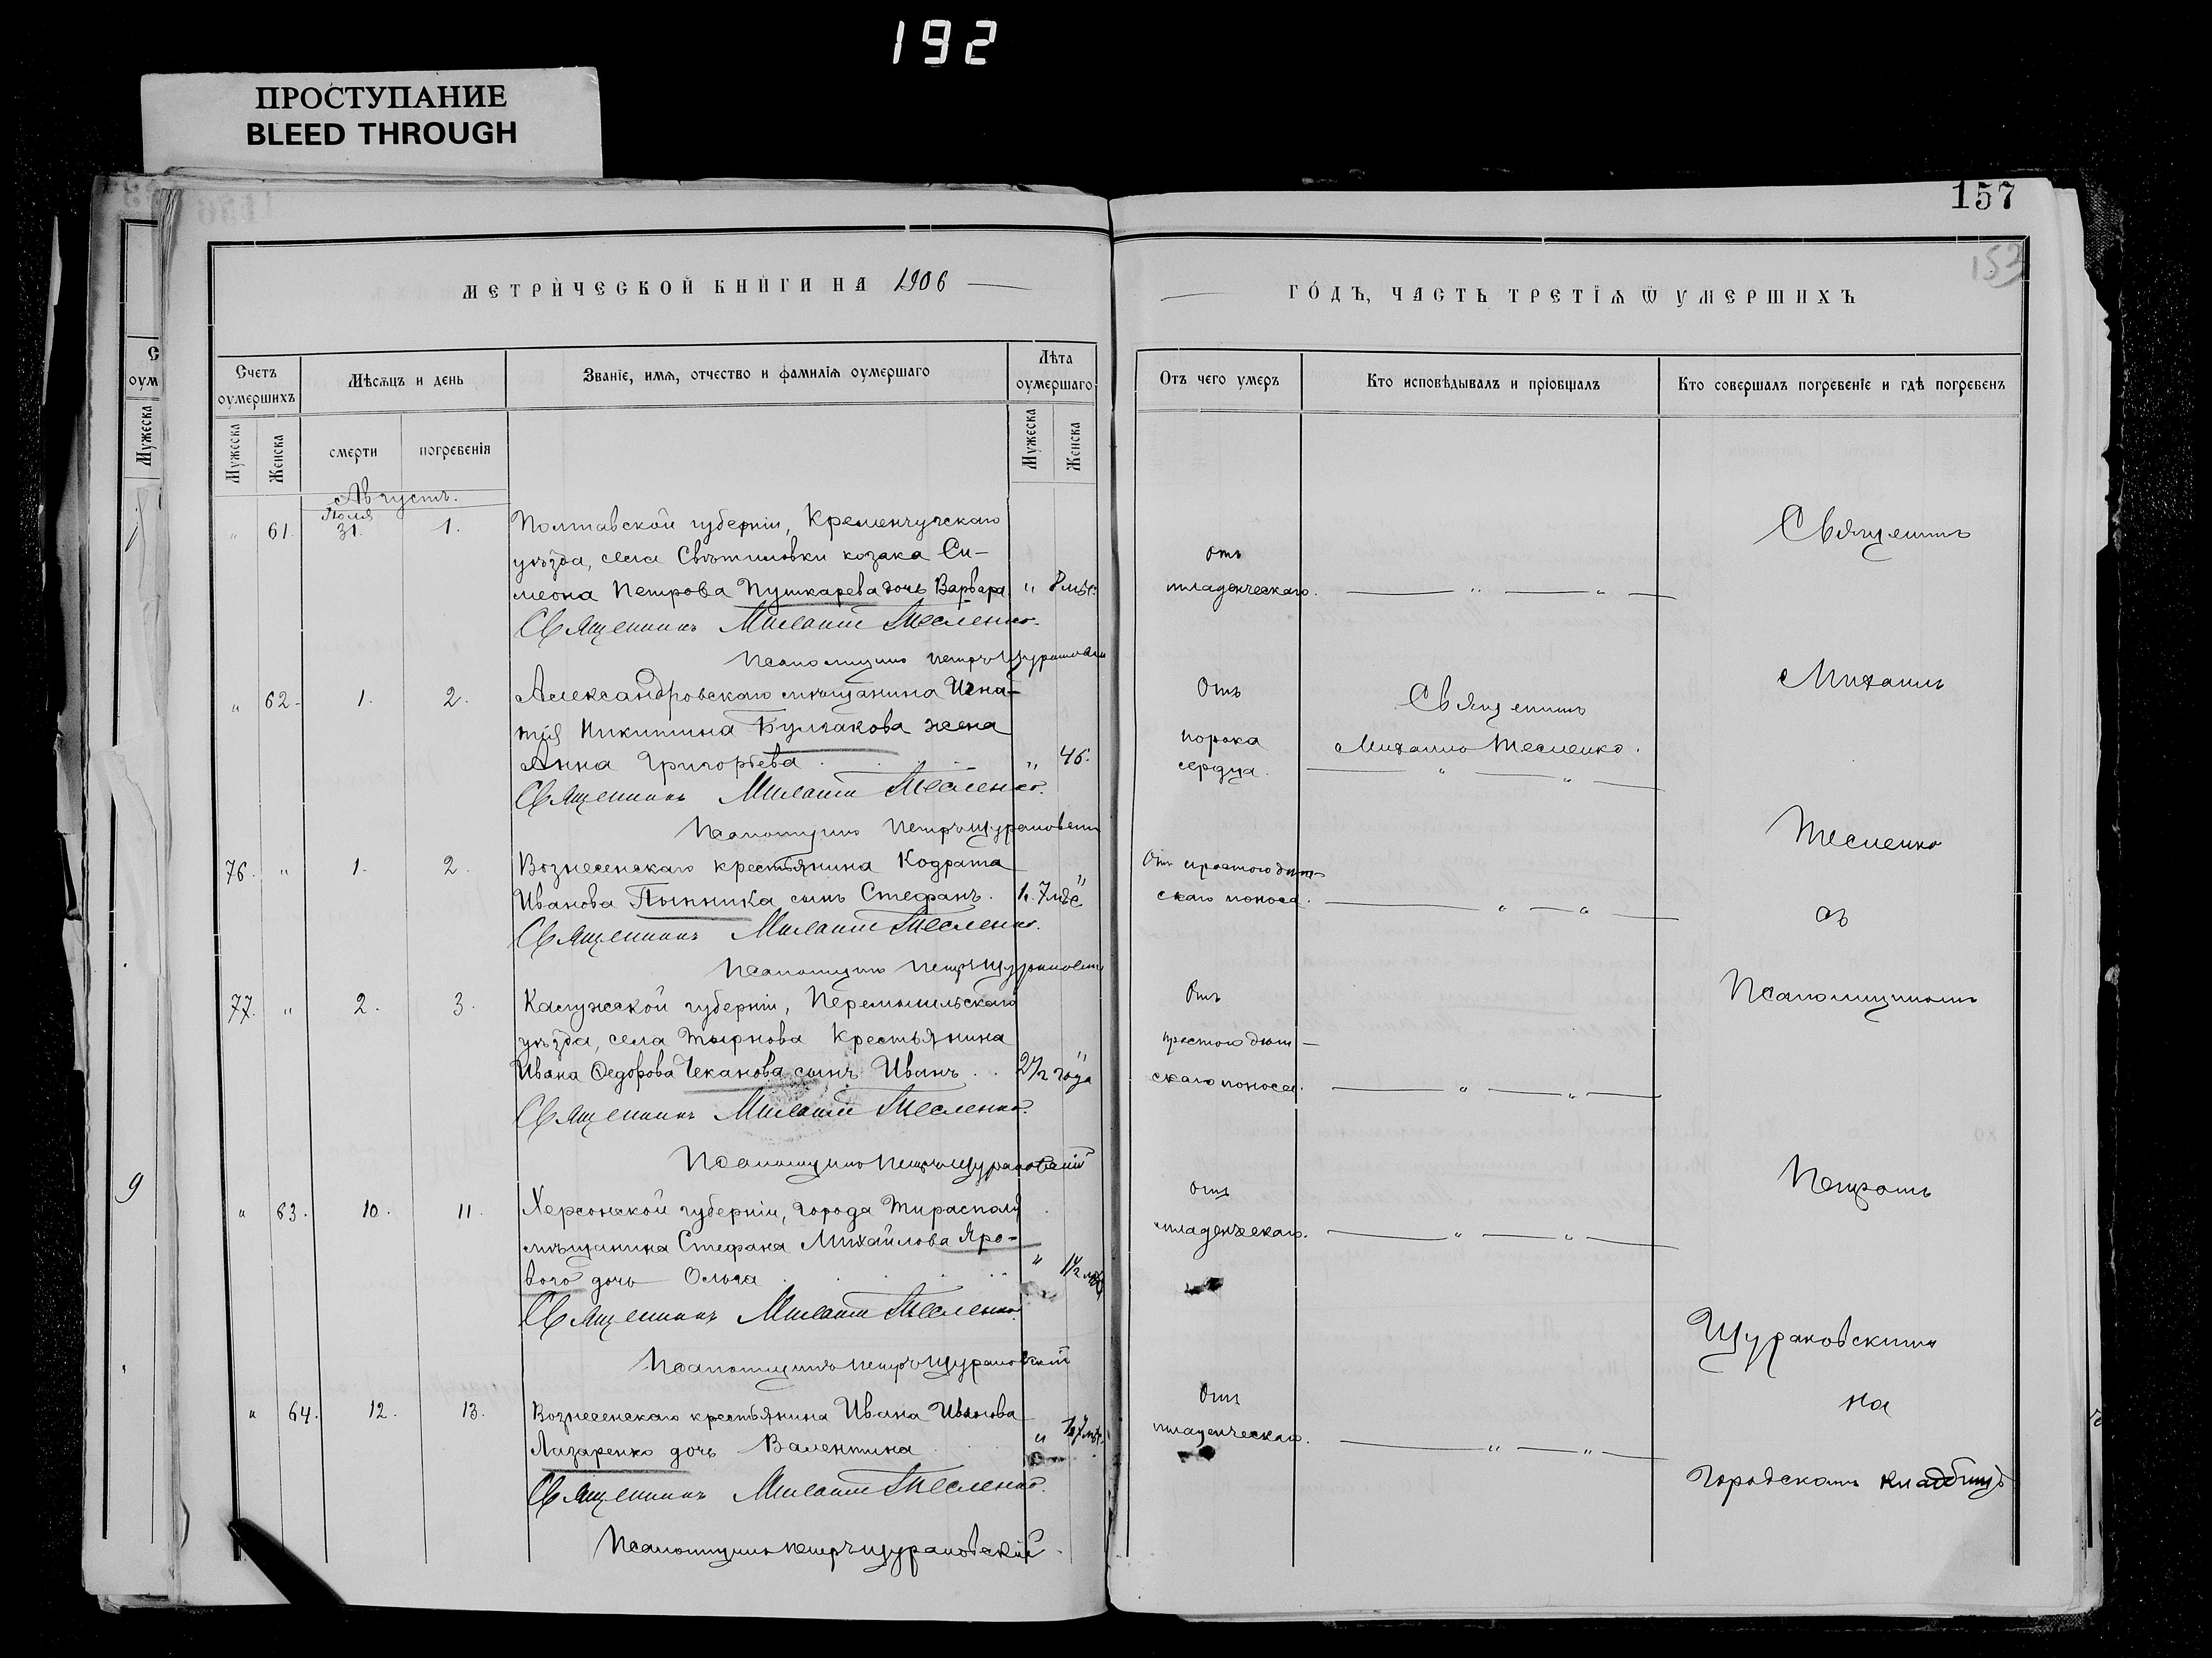 192
ПРОСТУПАНИЕ
BLEED THROUGH
157
МЕТРИЧЕСКОЙ КНИГИ НА 1906
ГОДЪ, ЧАСТЬ ТРЕТІѦ Ѿ УМЕРШИХЪ
Счетъ оумершихъ
Мѣсѧцъ и день
Званіе, имѧ, отчество и фамиліѧ оумершаго
Лѣта оумершаго
Отъ чего умеръ
Кто исповѣдывалъ и пріобщалъ
Кто совершалъ погребеніе и гдѣ погребенъ
Мужеска
Женска
смерти
погребенія
Мужеска
Женска
Августъ.
Іюля
" 61. 31. 1. Полтавской губерніи, Кременчугскаго
уѣзда, села Свѣтиловки козака Си-
меона Петрова Пушкарева дочь Варвара " 8 мѣс.
отъ
младенческаго.
Священникъ Михаилъ Тесленко.
Псаломщикъ Петръ Щураковскій
" 62. 1. 2. Александровскаго мѣщанина Игна-
тія Никитина Булгакова жена
Анна Григорьева " 46.
Отъ
порока
сердца.
Священникъ
Михаилъ Тесленко.
Священникъ Михаилъ Тесленко.
Псаломщикъ Петръ Щураковскій
76. " 1. 2. Вознесенскаго крестьянина Кодрата
Иванова Пынника сынъ Стефанъ. 1 г. 7 мѣс "
Отъ простого дѣт-
скаго поноса.
Священникъ Михаилъ Тесленко.
Псаломщикъ Петръ Щураковскій
77. " 2. 3. Калужской губерніи, Перемышльскаго
уѣзда, села Тырнова Крестьянина
Ивана Ѳедорова Чеканова сынъ Иванъ 2 1/2 года "
Отъ
простого дѣт-
скаго поноса.
Священникъ Михаилъ Тесленко.
Псаломщикъ Петръ Щураковскій
" 63. 10. 11. Херсонской губерніи, города Тирасполя
мѣщанина Стефана Михайлова Яро-
вого дочь Ольга " 1 1/2 мѣс
Отъ
младенческаго.
Священникъ Михаилъ Тесленко.
Псаломщикъ Петръ Щураковскій
" 64. 12. 13. Вознесенскаго крестьянина Ивана Иванова
Лазаренко дочь Валентина "
Отъ
младенческаго.
Священникъ Михаилъ Тесленко.
Псаломщикъ Петръ Щураковскій.
Священникъ
Михаилъ
Тесленко
съ
Псаломщикомъ
Петромъ
Щураковскимъ
на
Городскомъ кладбищѣ